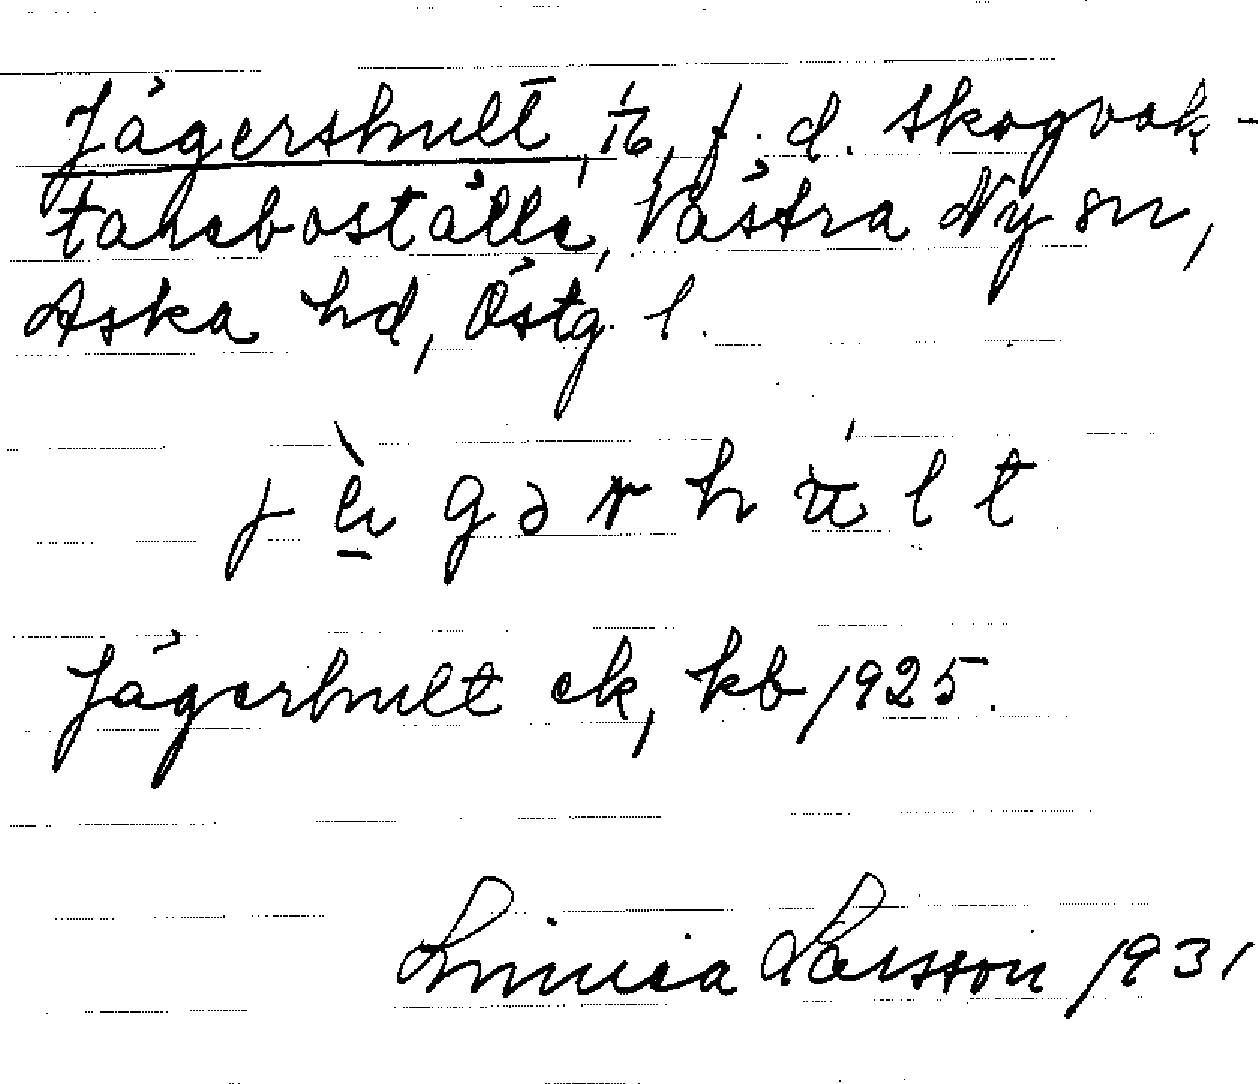 Jägershult, 1/16, f. d. skogvak-
tareboställe, Västra Ny sn,
Aska hd, Östg. l.
j æ̀ g ə r h ú l t
Jägerhult ek, kb 1925.
Linnea Larsson 1931